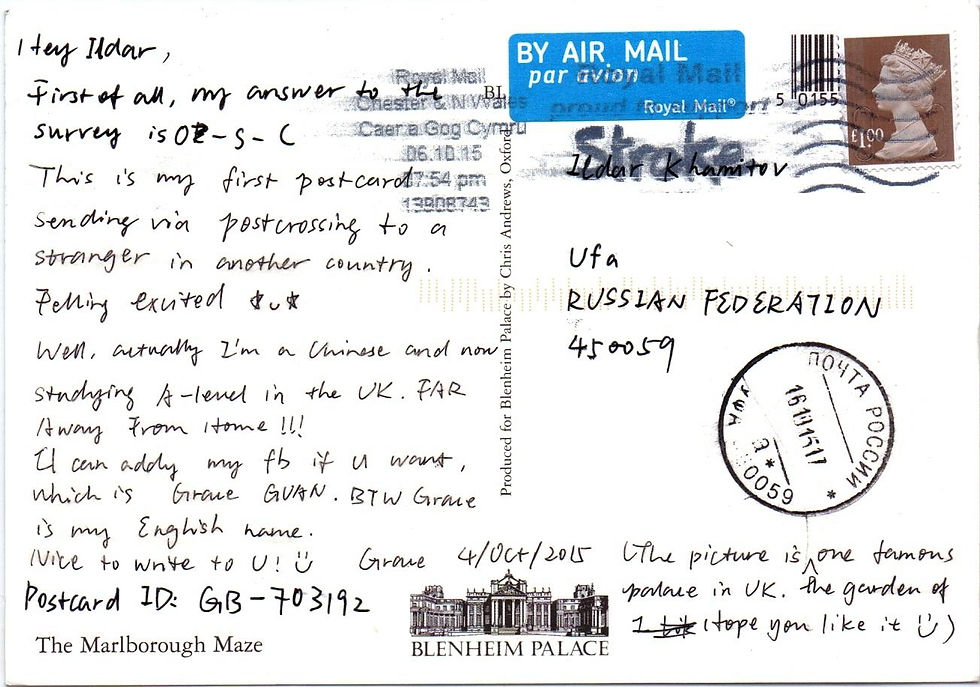 Hey Ildar,
First of all, my answer to the
survey is OE-S-C
This is my first postcard
sending via postcrossing to a
stranger in another country.
Felling excited
Well, actually I'm a Chinese and now
studying A-level in the UK. FAR
Away From Home!!!
U can addy my fb if U want,
which is Grace GUAN. BTW Grace
is my English name.
Nice to write to U!
Grace 4/Oct/2015
Postcard ID: GB-703192
The Marlborough Maze
BLENHEIM PALACE
(The picture is one famous
palace in UK. the garden of
I Hope you like it )
Produced for Blenheim Palace by Chris Andrews, Oxford
BL
BY AIR MAIL
par avion
Royal Mail®
Royal Mail
Chester & N Wales
Caer a Gog Cymru
06.10.15
7:54 pm
13908743
Royal Mail
proud to support
Stroke
5 0155
£1.00
Ildar Khamitov
Ufa
RUSSIAN FEDERATION
450059
ПОЧТА РОССИИ
УФА
0059